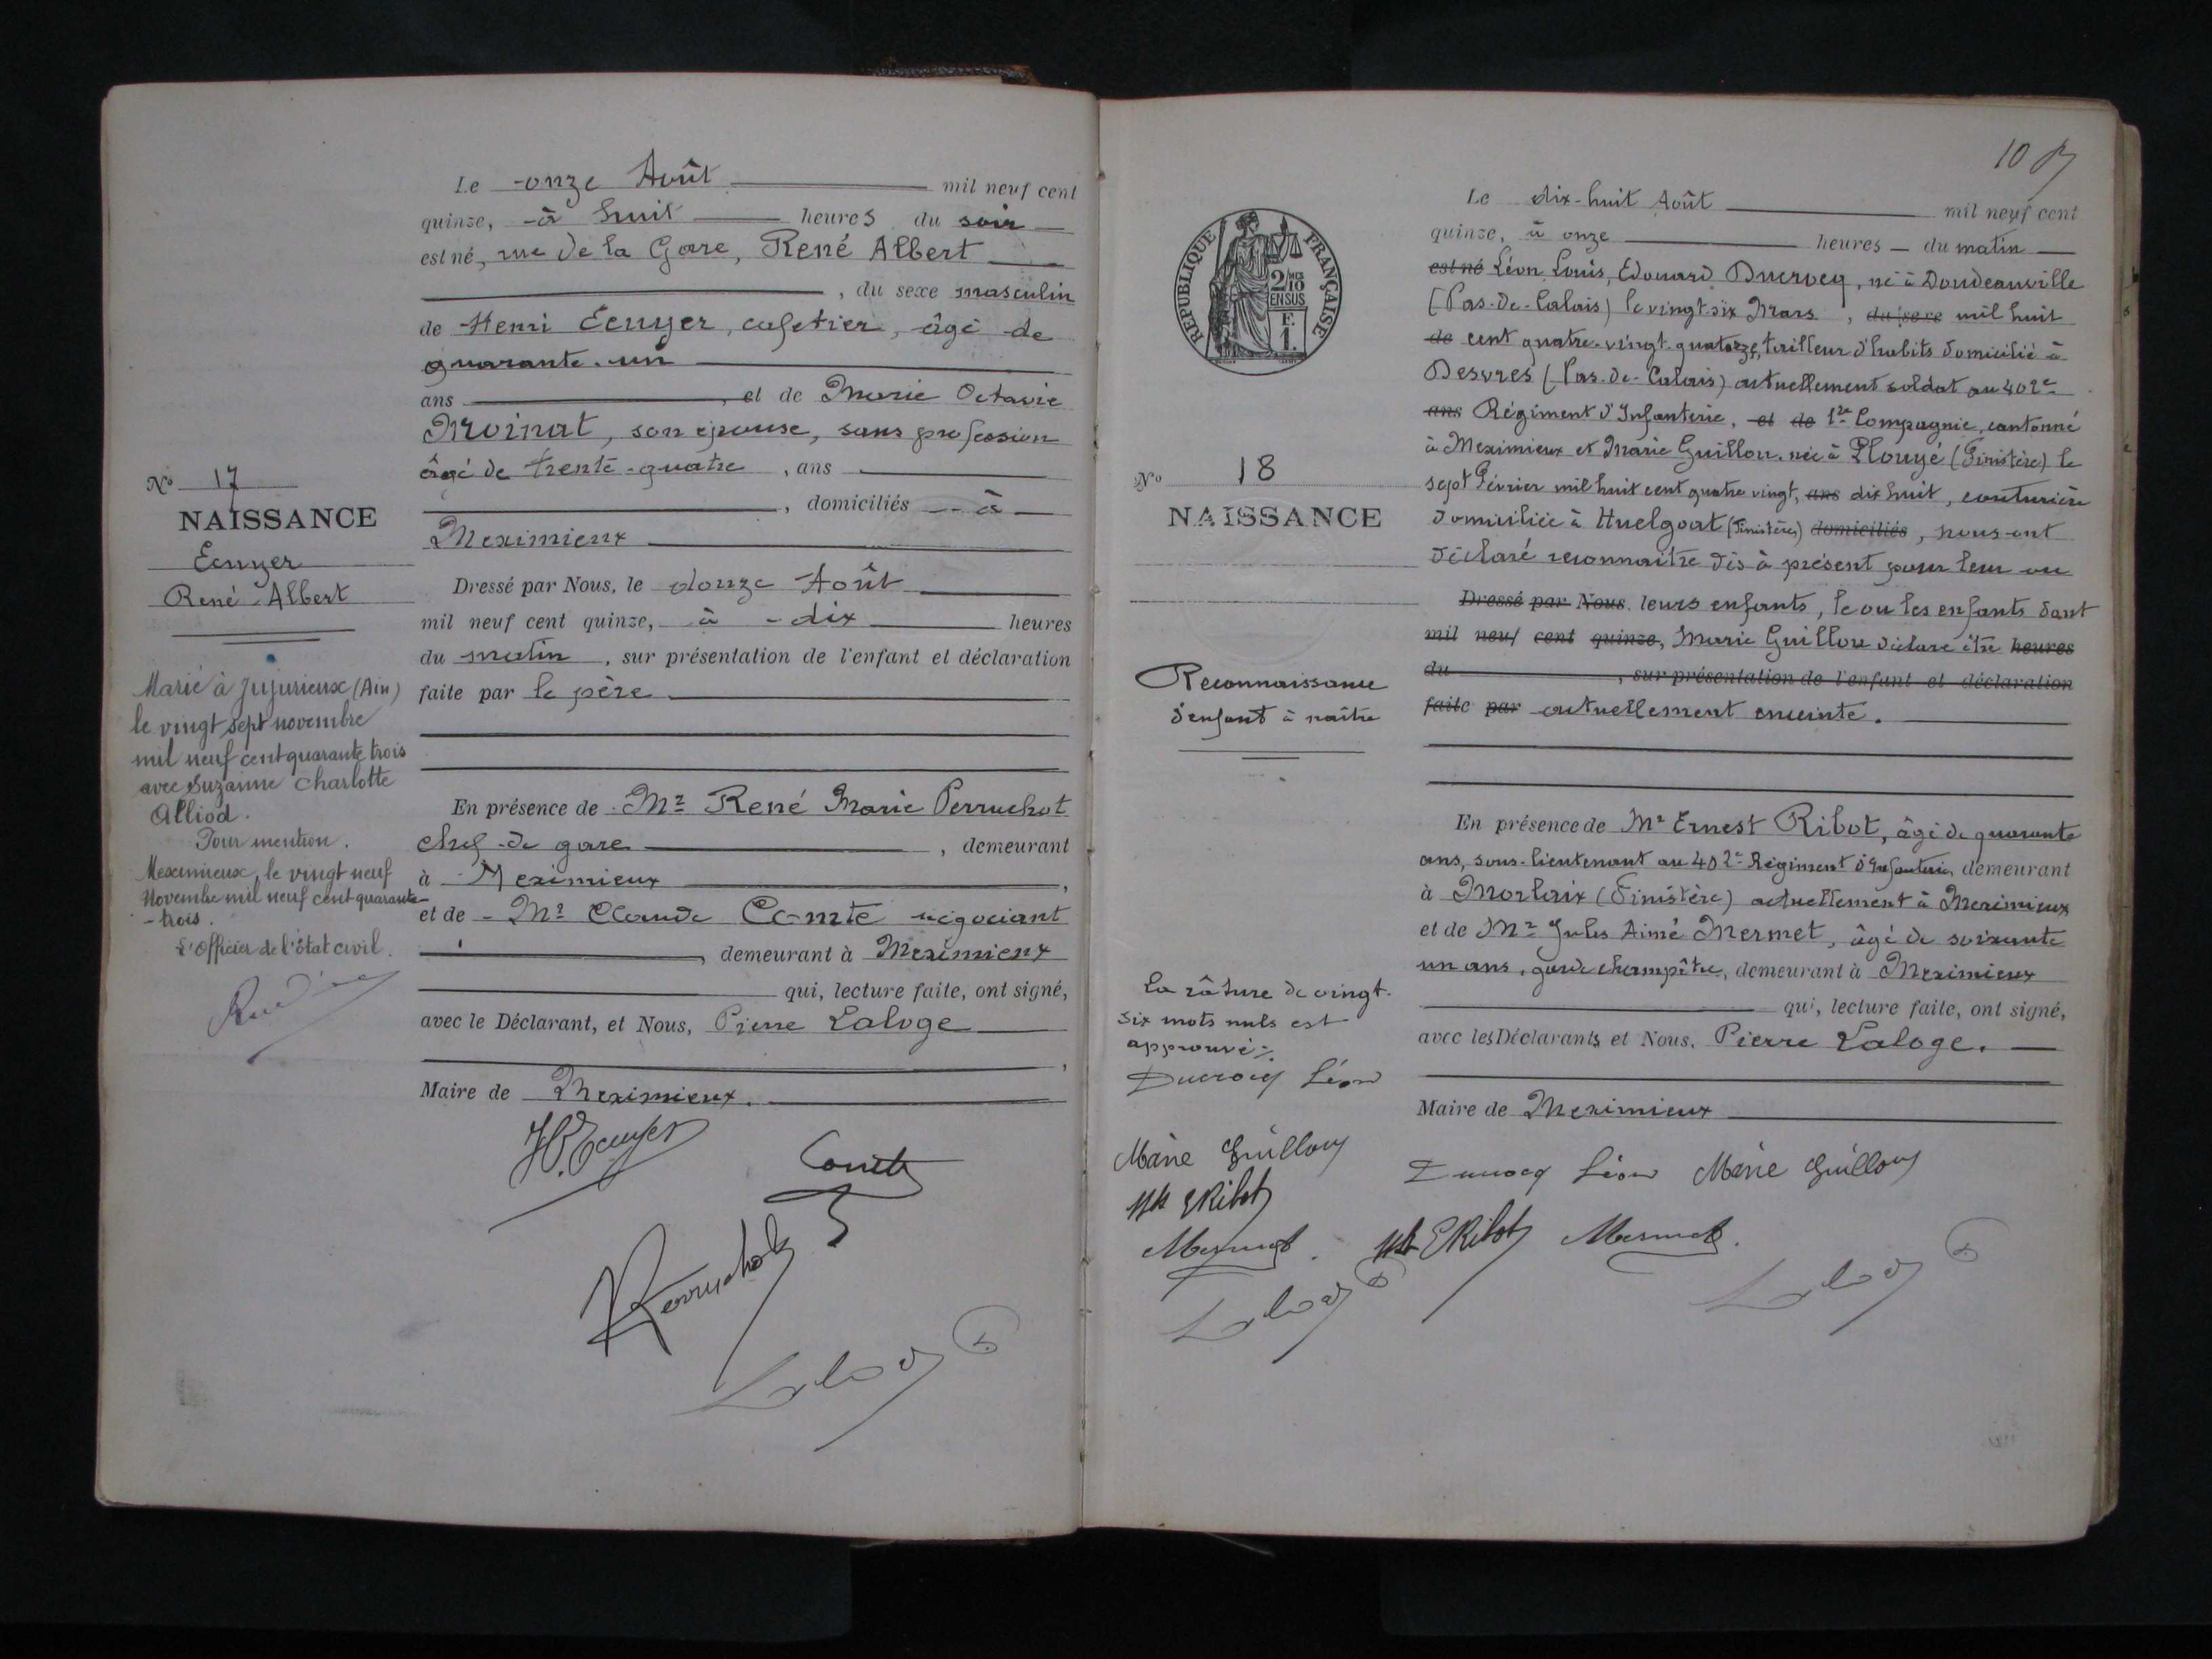 Le onze Août mil neuf cent
quinze, à huit heures du soir
est né, rue de la Gare, René Albert
, du sexe masculin
de Henri Ecuyer, cafetier, âgé de
quarante-un
ans, et de Marie Octavie
Moinat, son épouse, sans profession
âgé de trente-quatre, ans
, domiciliés à
Meximieux
Dressé par Nous, le douze Août
mil neuf cent quinze, à dix heures
du matin, sur présentation de l'enfant et déclaration
faite par le père
En présence de Mr René Marie Perruchot
chef de gare, demeurant
à Meximieux,
et de Mr Claude Comte négociant
, demeurant à Meximieux
qui, lecture faite, ont signé,
avec le Déclarant, et Nous, Pierre Laloge
,
Maire de Meximieux.
H. Ecuyer
Comte
Perruchot
Laloge
No 17
NAISSANCE
Ecuyer
René Albert
Marié à Jujurieux (Ain)
le vingt sept novembre
mil neuf cent quarante trois
avec Suzanne Charlotte
Alliod.
Pour mention.
Meximieux, le vingt neuf
Novembre mil neuf cent quarante
-trois.
L'Officier de l'état civil.
10
REPUBLIQUE FRANÇAISE
2/10
EN SUS
F.
1.
No 18
NAISSANCE
Reconnaissance
d'enfant à naître
La râture de vingt-
six mots nuls est
approuvé.
Ducrocq Léon
Marie Guillou
E Ribot
Mermet
Laloge
Le dix-huit Août mil neuf cent
quinze, à onze heures du matin
est né Léon Louis, Edouard Ducrocq, né à Doudeauville
(Pas-de-Calais) le vingt-six Mars, du sexe mil huit
de cent quatre-vingt-quatorze, tailleur d'habits domicilié à
Desvres (Pas-de-Calais) actuellement soldat au 402e
ans Régiment d'Infanterie, et de 12e Compagnie, cantonné
à Meximieux et Marie Guillou, née à Plouyé (Finistère) le
sept Février mil huit cent quatre vingt, ans dix huit, couturière
domiciliée à Huelgoat (Finistère) domiciliés, nous ont
déclaré reconnaître dès à présent pour leur ou
Dressé par Nous leurs enfants, le ou les enfants dont
mil neuf cent quinze, Marie Guillou déclare être heures
du, sur présentation de l'enfant et déclaration
faite par actuellement enceinte.
En présence de Mr Ernest Ribot, âgé de quarante
ans, sous-lieutenant au 402e Régiment d'Infanterie, demeurant
à Morlaix (Finistère) actuellement à Meximieux
et de Mr Jules Aimé Mermet, âgé de soixante
un ans, garde champêtre, demeurant à Meximieux
qui, lecture faite, ont signé,
avec les Déclarants et Nous, Pierre Laloge.
Maire de Meximieux
Ducrocq Léon Marie Guillou
E Ribot Mermet
Laloge